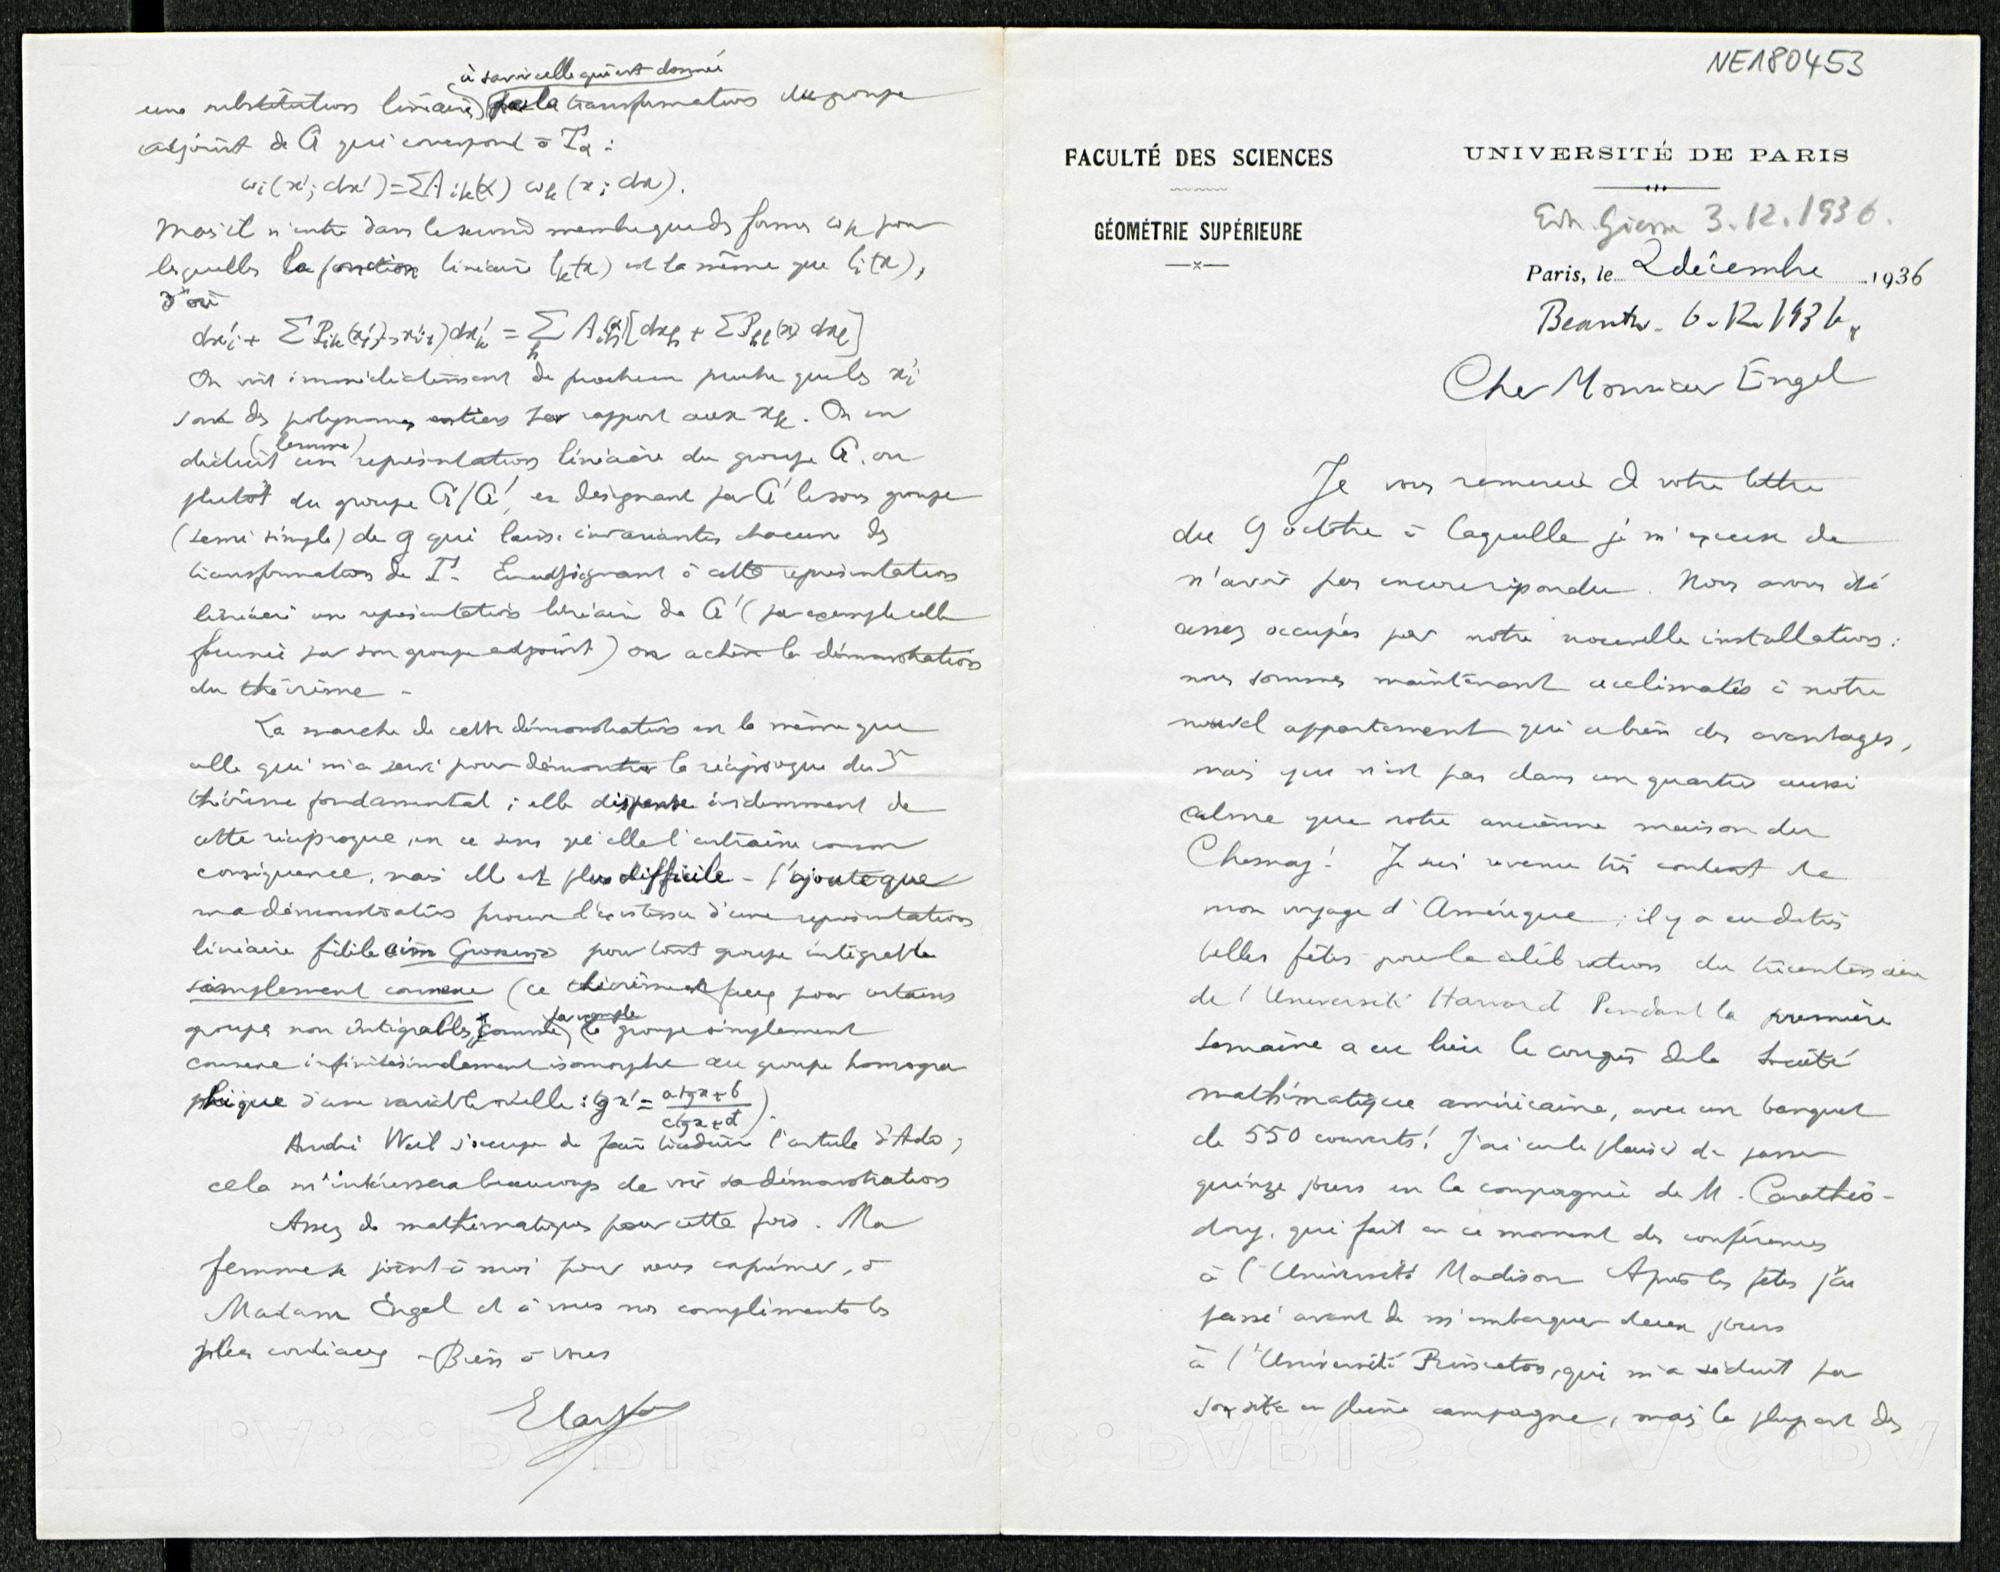 NE180453
FACULTÉ DES SCIENCES
GÉOMÉTRIE SUPÉRIEURE
UNIVERSITÉ DE PARIS
3.12.1936.
Paris, le 2 décembre 1936
Beantw. 6.12.1936
Cher Monsieur Engel
Je vous remercie de votre lettre
du 9 octobre à laquelle je m'excuse de
n'avoir pas encore répondu. Nous avons été
assez occupés par notre nouvelle installation :
nous sommes maintenant acclimatés à notre
nouvel appartement qui a bien des avantages,
mais qui n'est pas dans un quartier aussi
calme que notre ancienne maison du
Chesnay! Je suis revenu très content de
mon voyage d'Amérique ; il y a eu de très
belles fêtes pour la célébration du tricentenaire
de l'Université Harvard Pendant la première
semaine a eu lieu le congrès de la Société
mathématique américaine, avec un banquet
de 550 couverts! J'ai eu le plaisir de passer
quinze jours en la compagnie de M. Carathéo-
dory, qui fait en ce moment des conférences
à l'Université Madison Après les fêtes j'ai
passé avant de m'embarquer deux jours
à l'Université Princeton, qui m'a séduit par
son site en pleine campagne, mais la plupart des
à savoir celle qui est donnée
une substitution linéaire par la transformation du groupe
adjoint de G qui correspond à Tα :
ωi(x'; dx') = Σ Aik(α) ωk(x; dx).
Mais il n'entre dans le second membre que des formes ωk pour
lesquelles la fonction linéaire lk(x) est la même que li(x),
d'où
dx'i + Σ Pik(x'1, ..., x'i-1) dx'k = Σh Aih(α)[dxh + Σ Phl(x) dxl]
On voit immédiatement de proche en proche que les x'i
sont des polynomes entiers par rapport aux xk. On en
déduit (lemme) une représentation linéaire du groupe G, ou
plutôt du groupe G/G', en désignant par G' le sous groupe
(semi simple) de g qui laisse invariantes chacune des
transformations de Γ. En adjoignant à cette représentation
linéaire une représentation linéaire de G' (par exemple celle
fournie par son groupe adjoint) on achève la démonstration
du théorème -
La marche de cette démonstration est la même que
celle qui m'a servi pour démontrer la réciproque du 3e
théorème fondamental ; elle dispense évidemment de
cette réciproque, en ce sens qu'elle l'entraîne comme
conséquence, mais elle est plus difficile - J'ajoute que
ma démonstration prouve l'existence d'une représentation
linéaire fidèle im Grossen pour tout groupe intégrable
simplement connexe (ce théorème est faux pour certains
groupes non intégrables, comme par exemple le groupe simplement
connexe infinitésimalement isomorphe au groupe homogra
phique d'une variable réelle : tg x' = (a tg x + b)/(c tg x + d)).
André Weil s'occupe de faire traduire l'article d'Ado ;
cela m'intéressera beaucoup de voir sa démonstration
Assez de mathématiques pour cette fois. Ma
femme se joint à moi pour vous exprimer, à
Madame Engel et à vous nos compliments les
plus cordiaux - Bien à vous
E Cartan